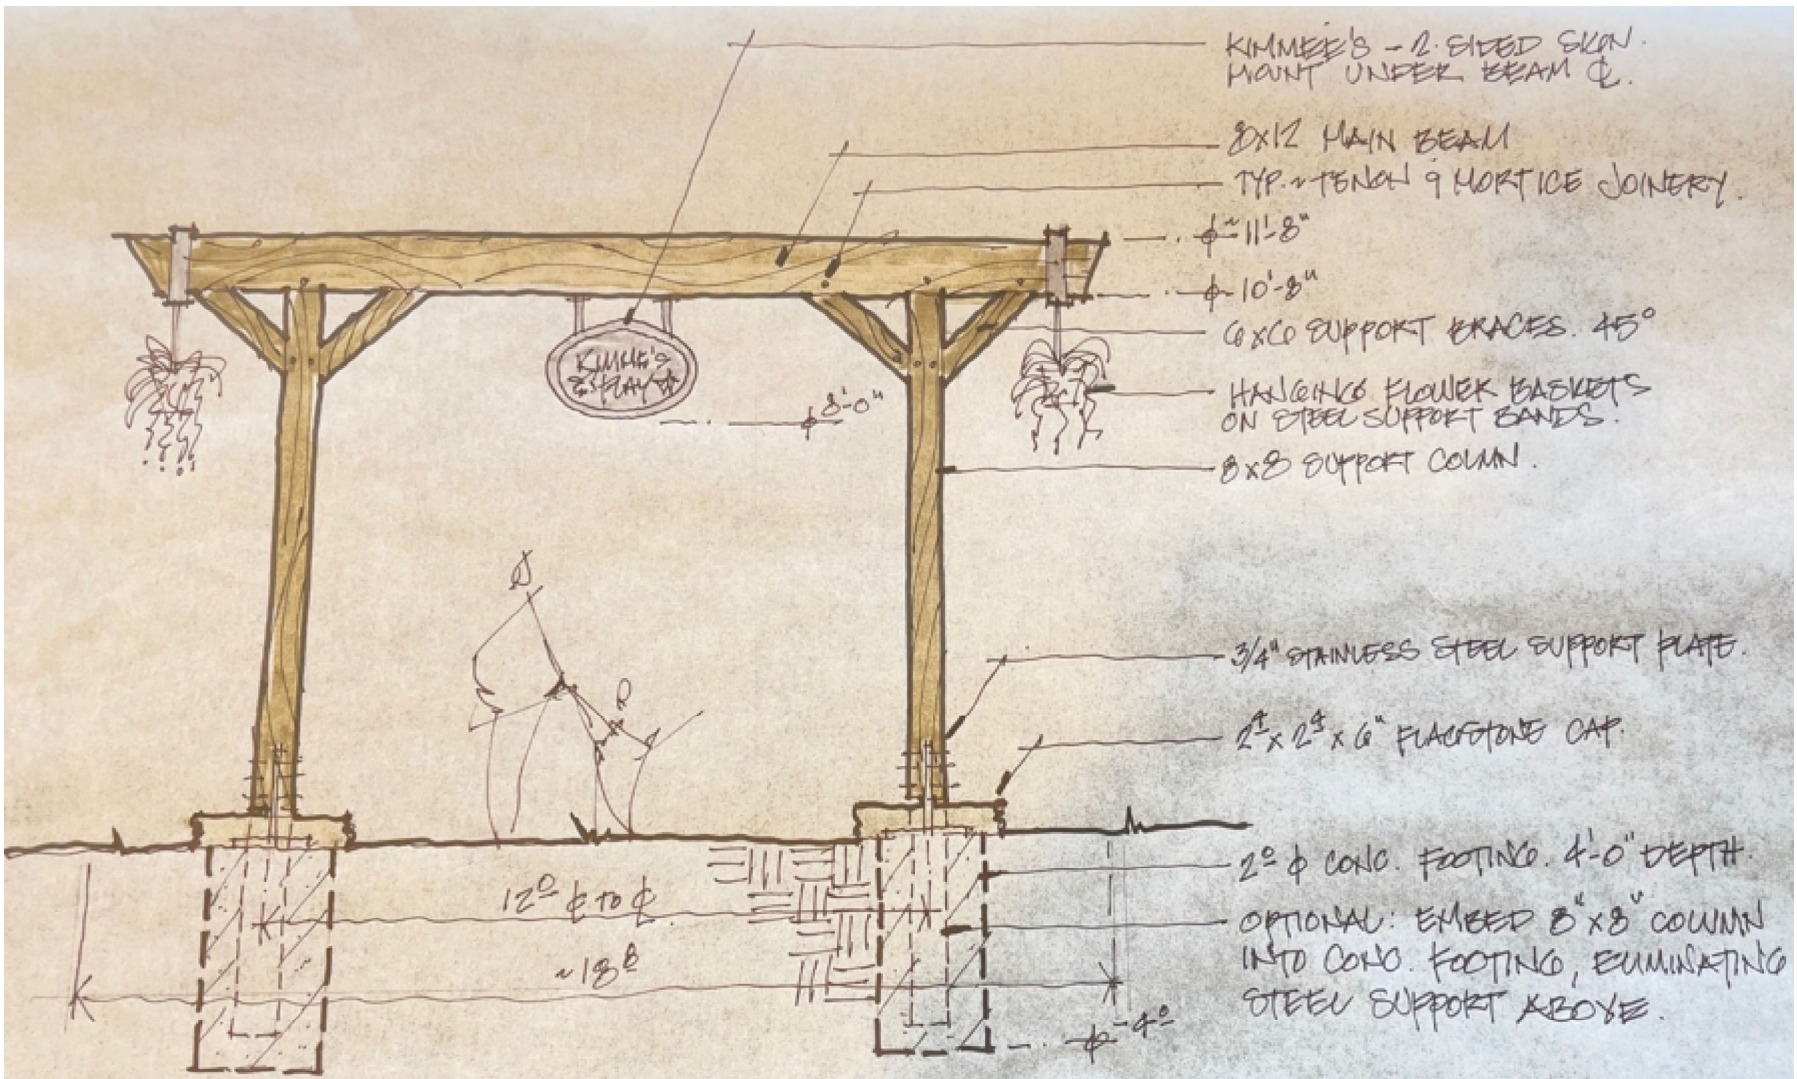 KIMMEE'S - 2-SIDED SIGN.
MOUNT UNDER BEAM ℄.
8x12 MAIN BEAM
TYP. ~ TENON & MORTICE JOINERY.
~ 11'-8"
10'-8"
6x6 SUPPORT BRACES. 45°
KIMME'S
PLAY
8'-0"
HANGING FLOWER BASKETS
ON STEEL SUPPORT BANDS.
8x8 SUPPORT COLUMN.
3/4" STAINLESS STEEL SUPPORT PLATE.
2⁴ x 2⁴ x 6" FLAGSTONE CAP.
2⁰ ϕ CONC. FOOTING. 4'-0" DEPTH.
12⁰ ℄ TO ℄
OPTIONAL: EMBED 8"x8" COLUMN
INTO CONC. FOOTING, ELIMINATING
STEEL SUPPORT ABOVE.
~18⁸
-4⁰